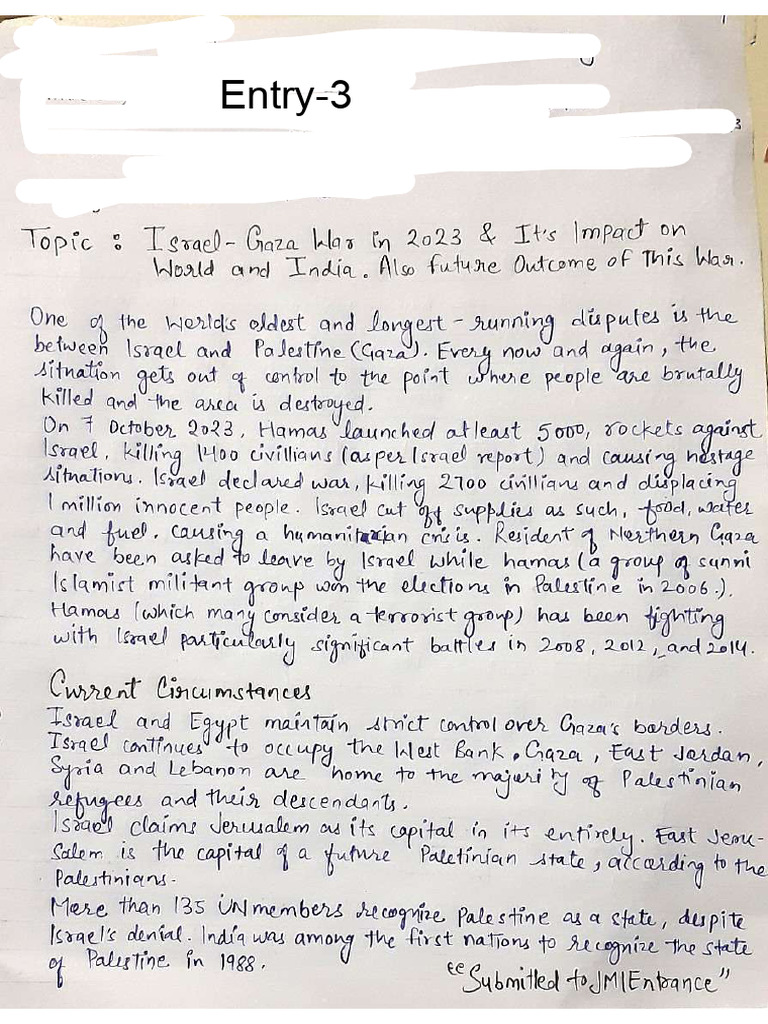 Entry-3
Topic : Israel-Gaza War in 2023 & It's Impact on
World and India. Also future Outcome of This War.
One of the World's oldest and longest-running disputes is the
between Israel and Palestine (Gaza). Every now and again, the
situation gets out of control to the point where people are brutally
killed and the area is destroyed.
On 7 October 2023, Hamas launched atleast 5000, rockets against
Israel, killing 1400 civillians (as per Israel report) and causing hostage
situations. Israel declared war, killing 2700 civillians and displacing
1 million innocent people. Israel cut off supplies as such, food, water
and fuel, causing a humanitarian crisis. Resident of Northern Gaza
have been asked to leave by Israel while hamas (a group of sunni
Islamist militant group won the elections in Palestine in 2006.).
Hamas (which many consider a terrorist group) has been fighting
with Israel particularly significant battles in 2008, 2012, and 2014.
Current Circumstances
Israel and Egypt maintain strict control over Gaza's borders.
Israel continues to occupy the West Bank, Gaza, East Jordan,
Syria and Lebanon are home to the majority of Palestinian
refugees and their descendants.
Israel claims Jerusalem as its capital in its entirely. East Jeru-
Salem is the capital of a future Paletinian state, according to the
Palestinians.
More than 135 UN members recognize Palestine as a state, despite
Israel's denial. India was among the first nations to recognize the state
of Palestine in 1988.
"Submitted to JMIEntrance"